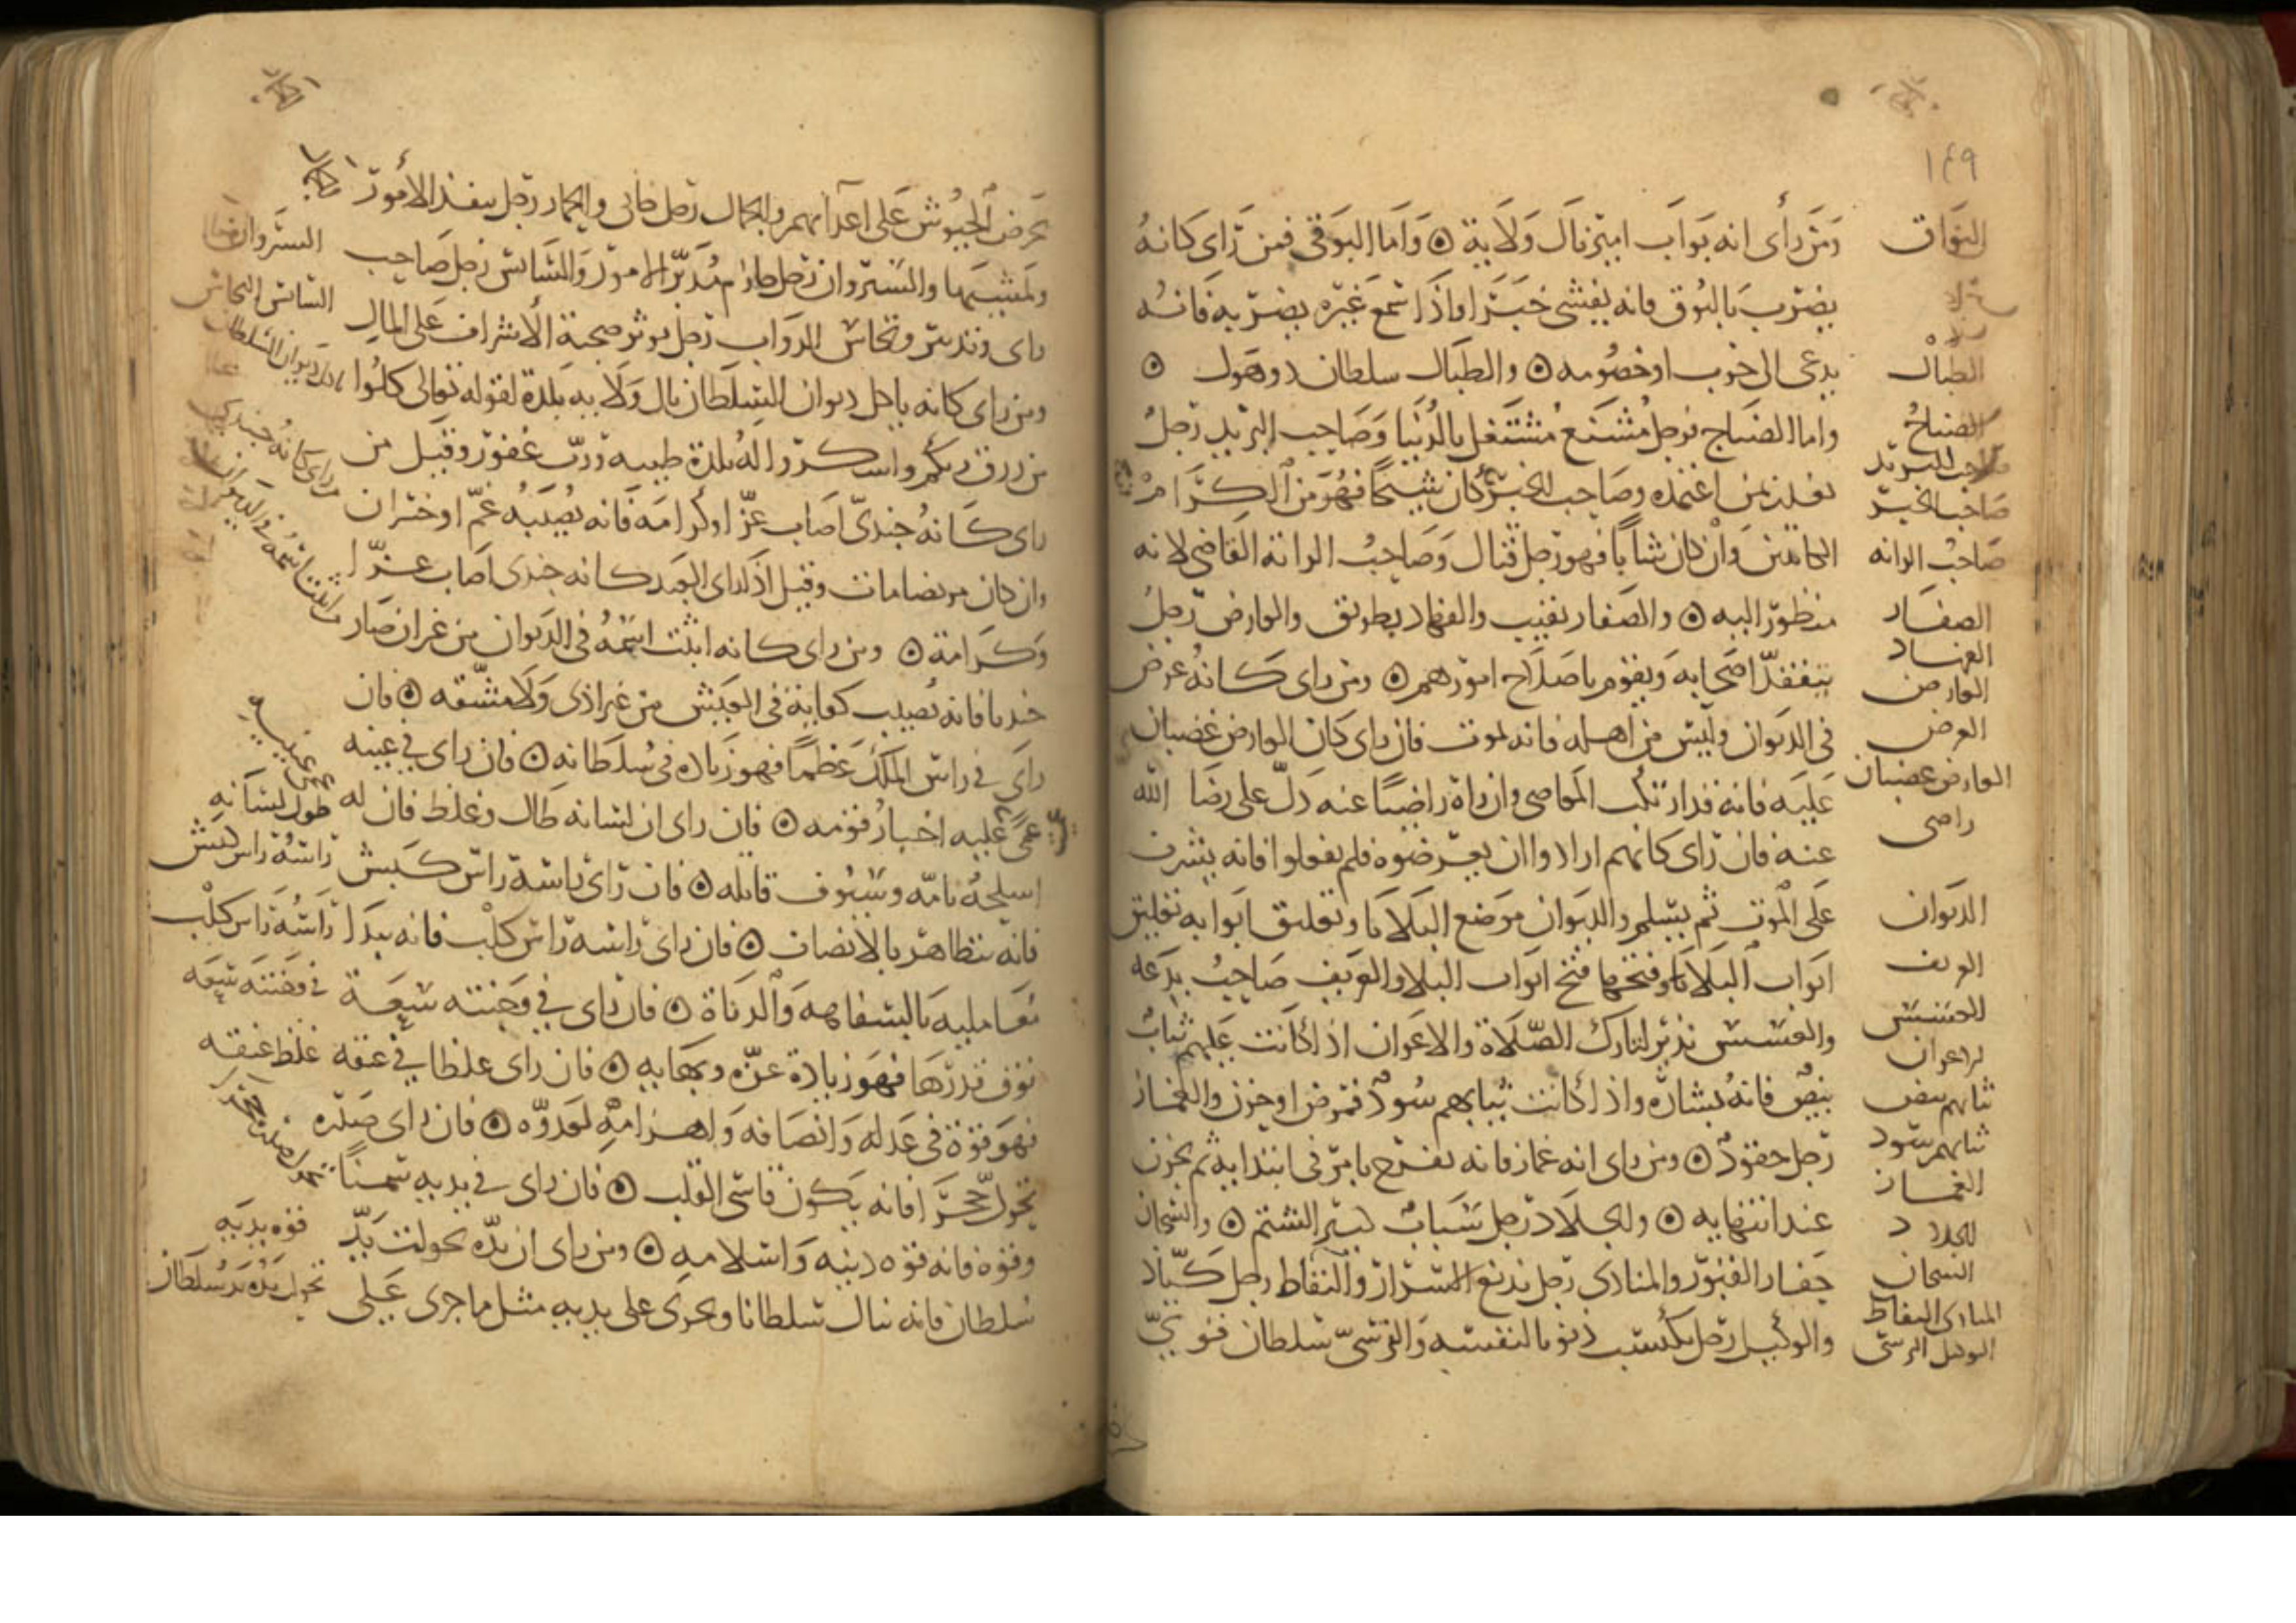 ١٤٩
البواب
ومن رأى انه بواب امير نال ولاية ⊙ واما البوقي فمن راى كانه
يضرب بالبوق فانه يفشي خبرا واذا سمع غيره يضرب به فانه
الطبال
يدعى الى حرب او خصومه ⊙ والطبال سلطان ذو هول ⊙
الصناج
واما الصناج فرجل مشنع مشتغل بالدنيا وصاحب البريد رجل
صاحب البريد
صاحب الخبر
من اعتمده وصاحب الخبر ان كان شيخا فهو من الكرام
صاحب الراية
الكاتبين وان كان شابا فهو رجل قتال وصاحب الراية القاضي لانه
الصفار
منظور اليه ⊙ والصفار نقيب والفهاد بطريق والعارض رجل
الفهاد
العارض
يتفقد اصحابه ويقوم باصلاح امورهم ⊙ ومن راى كانه عرض
العرض
في الديوان وليس من اهله فانه يموت فان راى كان العارض غضبان
العارض غضبان
عليه فانه قد ارتكب المعاصي وان راه راضيا عنه دل على رضا الله
راضي
عنه فان راى كانهم ارادوا ان يعرضوه فلم يفعلوا فانه يشرف
الديوان
على الموت ثم يسلم والديوان موضع البلايا وتغليق ابوابه تغليق
العريف
ابواب البلايا وفتحها فتح ابواب البلا والعريف صاحب بدعة
العسس
والعسس نذير لتارك الصلاة والاعوان اذا كانت عليهم ثياب
الاعوان
ثيابهم بيض
بيض فانه بشارة واذا كانت ثيابهم سود فمرض او حزن والغماز
ثيابهم سود
رجل حقود ⊙ ومن راى انه غماز فانه يفرح بامر في ابتدايه ثم يحزن
الغماز
الجلاد
عند انتهايه ⊙ والجلاد رجل سباب كثير الشتم ⊙ والسجان
السجان
حفار القبور والمنادي رجل يذيع الاسرار والنفاط رجل كياد
المنادي النفاط
والوكيل رجل يكتسب ذنوبا لنفسه والفرشي سلطان قوي
يحرض الجيوش على اعدايهم والجمال رجل خاني والحمار رجل ينفذ الامور
ويمشيها والسروان رجل حازم مدبر الامور والسايس رجل صاحب
السروان
راي وتدبير ونخاس الدواب رجل يوثر صحبة الاشراف على المال
السايس النخاس
ومن راى كانه ياكل ديوان السلطان نال ولاية بلدة لقوله تعالى كلوا
ياكل ديوان السلطان
من رزق ربكم واشكروا له بلدة طيبة ورب غفور وقيل من
راى كانه جندي اصاب عزا وكرامة فانه يصيبه غم او خسران
من راى كانه جندي
وان كان مريضا مات وقيل اذا راى العبد كانه جندي اصاب عزا
وكرامة ⊙ ومن راى كانه اثبت اسمه في الديوان من غير ان صار
جنديا فانه يصيب كفاية في العيش من غير اذى ولا مشقة ⊙ فان
راى في راس الملك عظما فهو زيادة في سلطانه ⊙ فان راى في عينه
عمى عينيه
عمى عليه اخبار قومه ⊙ فان راى ان لسانه طال وغلظ فان له
طول لسانه
اسلحة تامة وسيوف قاتله ⊙ فان راى راسه راس كبش
راسه راس كبش
فانه يتظاهر بالانصاف ⊙ فان راى راسه راس كلب فانه يبدا
راسه راس كلب
معامليه بالسفاهة والدناة ⊙ فان راى في وجنته سعة
في وجنته سعة
فوق قدرها فهو زيادة عزه وبهايه ⊙ فان راى غلظا في عنقه
غلظ عنقه
فهو قوة في عدله وانصافه واهزامه لعدوه ⊙ فان راى صدره
تحول حجرا فانه يكون قاسي القلب ⊙ فان راى في يديه سمنا
وقوة فانه قوة دينه واسلامه ⊙ ومن راى ان يده تحولت يد
قوة يديه
سلطان فانه ينال سلطانا ويجري على يديه مثل ما جرى على
تحول يده يد سلطان